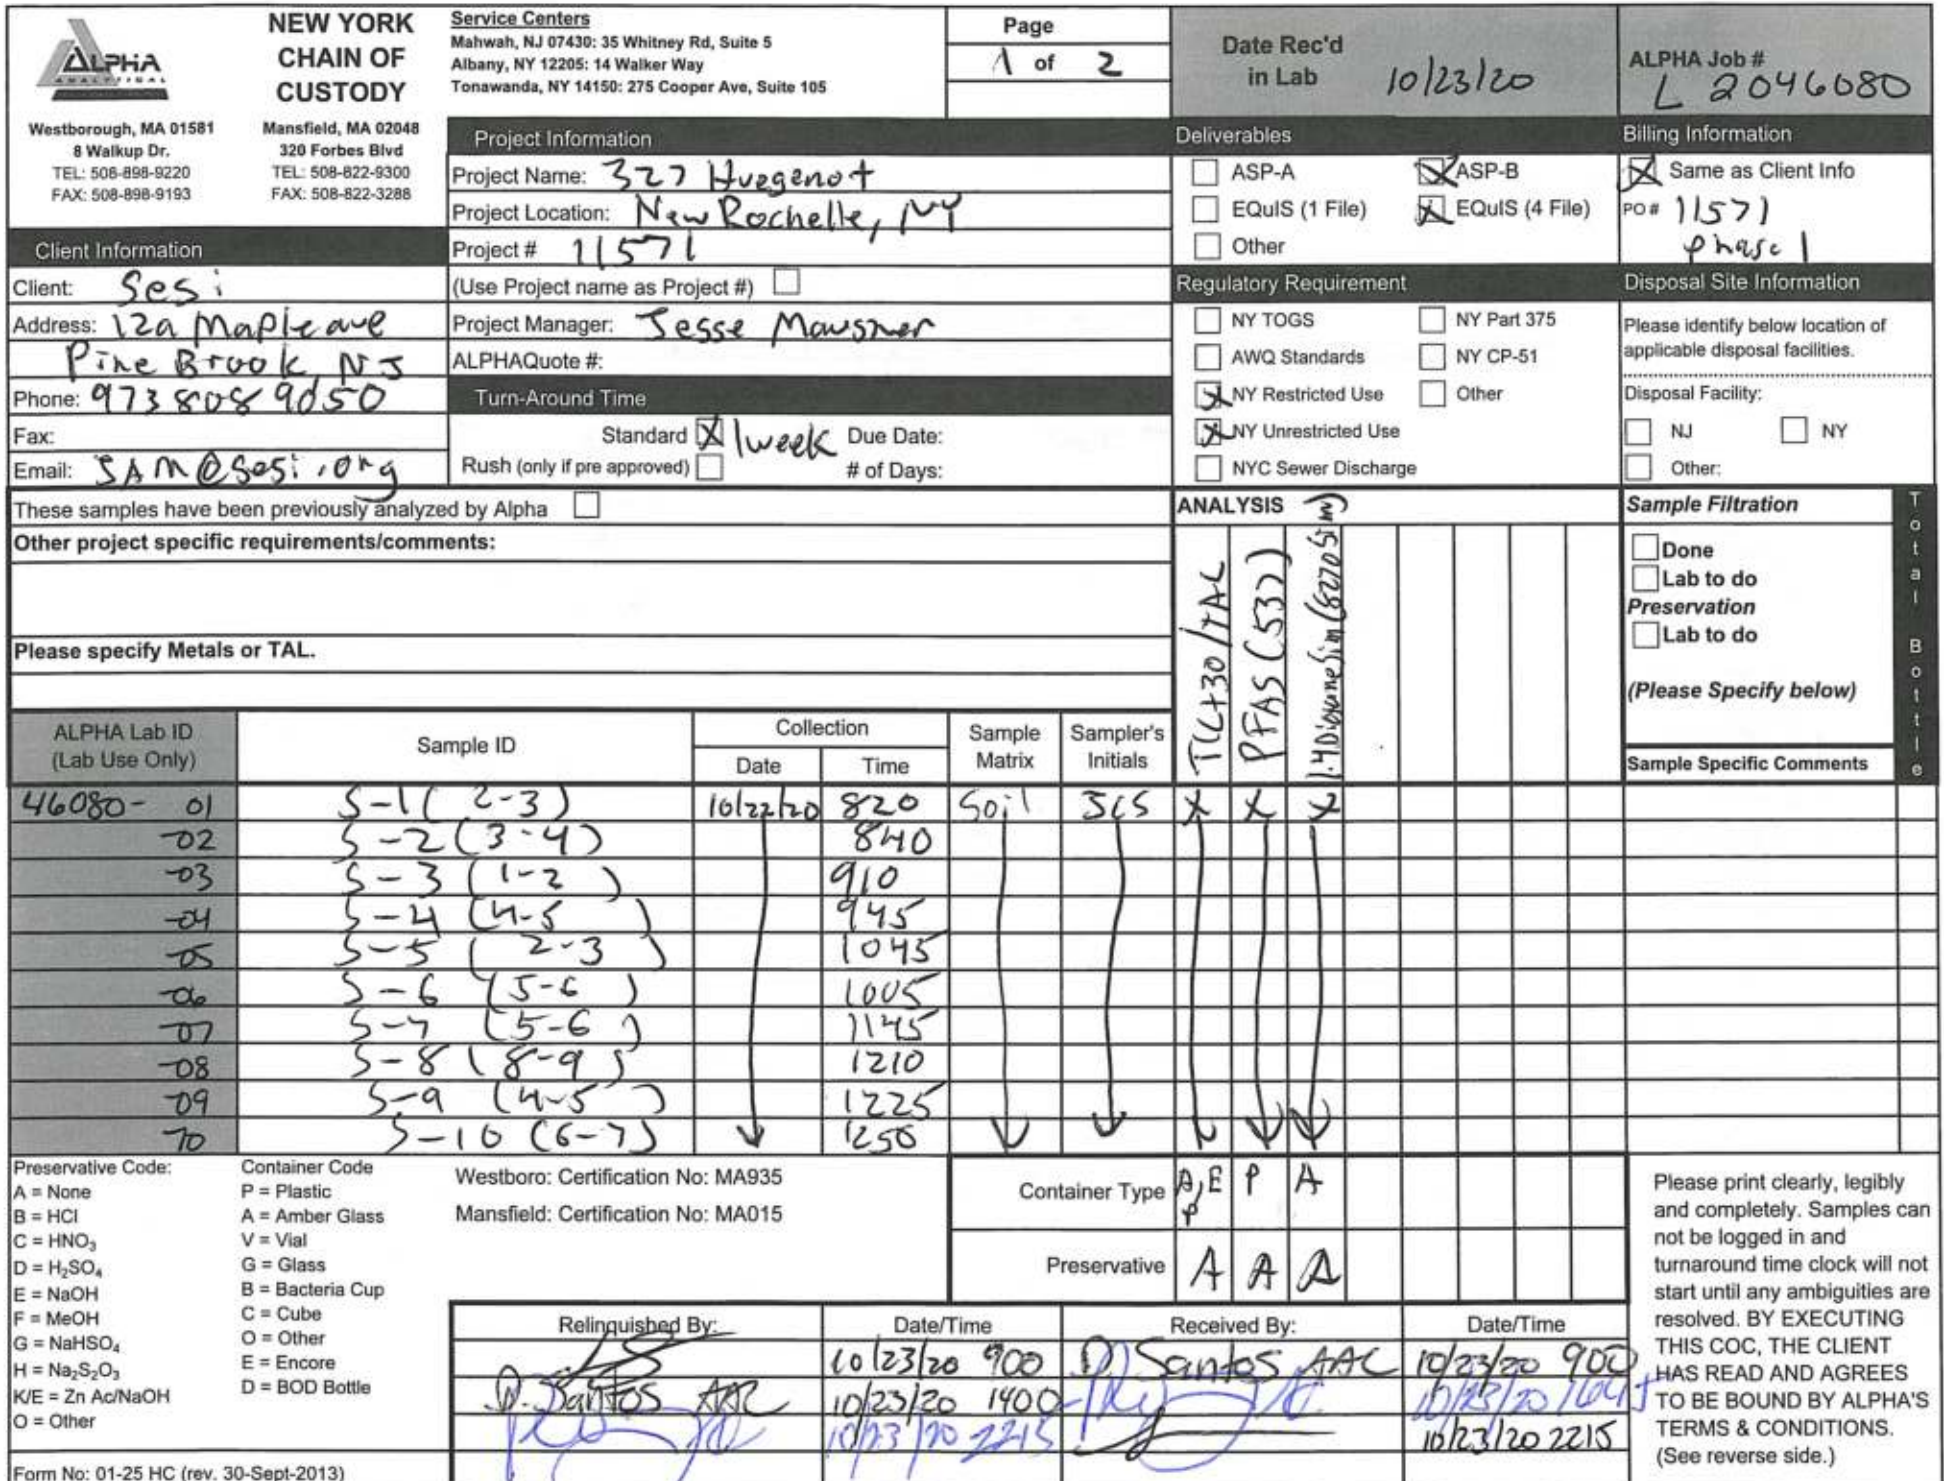 ALPHA
ANALYTICAL
NEW YORK
CHAIN OF
CUSTODY
Westborough, MA 01581
8 Walkup Dr.
TEL: 508-898-9220
FAX: 508-898-9193
Mansfield, MA 02048
320 Forbes Blvd
TEL: 508-822-9300
FAX: 508-822-3288
Service Centers
Mahwah, NJ 07430: 35 Whitney Rd, Suite 5
Albany, NY 12205: 14 Walker Way
Tonawanda, NY 14150: 275 Cooper Ave, Suite 105
Page
1 of 2
Date Rec'd
in Lab 10/23/20
ALPHA Job #
L 2046080
Client Information
Client: Sesi
Address: 12a Maple ave
Pine Brook NJ
Phone: 973 808 9050
Fax:
Email: JAM@sesi.org
Project Information
Project Name: 327 Huegenot
Project Location: New Rochelle, NY
Project # 11571
(Use Project name as Project #)
Project Manager: Jesse Mausner
ALPHAQuote #:
Turn-Around Time
Standard X 1 week Due Date:
Rush (only if pre approved) # of Days:
Deliverables
ASP-A X ASP-B
EQuIS (1 File) X EQuIS (4 File)
Other
Regulatory Requirement
NY TOGS NY Part 375
AWQ Standards NY CP-51
X NY Restricted Use Other
X NY Unrestricted Use
NYC Sewer Discharge
Billing Information
X Same as Client Info
PO # 11571
phase 1
Disposal Site Information
Please identify below location of
applicable disposal facilities.
Disposal Facility:
NJ NY
Other:
These samples have been previously analyzed by Alpha
Other project specific requirements/comments:
Please specify Metals or TAL.
ANALYSIS
TCL+30/TAL
PFAS (537)
1.4 Dioxane Sim (8270 Sim)
Sample Filtration
Done
Lab to do
Preservation
Lab to do
(Please Specify below)
Sample Specific Comments
Total Bottle
ALPHA Lab ID
(Lab Use Only)
Sample ID
Collection
Date Time
Sample
Matrix
Sampler's
Initials
46080- 01 S-1 ( 2-3) 10/22/20 820 Soil JCS X X X
-02 S-2 (3-4) 840
-03 S-3 (1-2) 910
-04 S-4 (4-5) 945
-05 S-5 ( 2-3 ) 1045
-06 S-6 (5-6 ) 1005
-07 S-7 (5-6 ) 1145
-08 S-8 (8-9 ) 1210
-09 S-9 (4-5 ) 1225
-10 S-10 (6-7) 1250
Preservative Code:
A = None
B = HCl
C = HNO₃
D = H₂SO₄
E = NaOH
F = MeOH
G = NaHSO₄
H = Na₂S₂O₃
K/E = Zn Ac/NaOH
O = Other
Container Code
P = Plastic
A = Amber Glass
V = Vial
G = Glass
B = Bacteria Cup
C = Cube
O = Other
E = Encore
D = BOD Bottle
Westboro: Certification No: MA935
Mansfield: Certification No: MA015
Container Type A,E P P A
Preservative A A A
Relinquished By: Date/Time Received By: Date/Time
10/23/20 900 D. Santos AAC 10/23/20 900
D. Santos AAC 10/23/20 1400 10/23/20 1645
10/23/20 2215 10/23/20 2215
Please print clearly, legibly
and completely. Samples can
not be logged in and
turnaround time clock will not
start until any ambiguities are
resolved. BY EXECUTING
THIS COC, THE CLIENT
HAS READ AND AGREES
TO BE BOUND BY ALPHA'S
TERMS & CONDITIONS.
(See reverse side.)
Form No: 01-25 HC (rev. 30-Sept-2013)